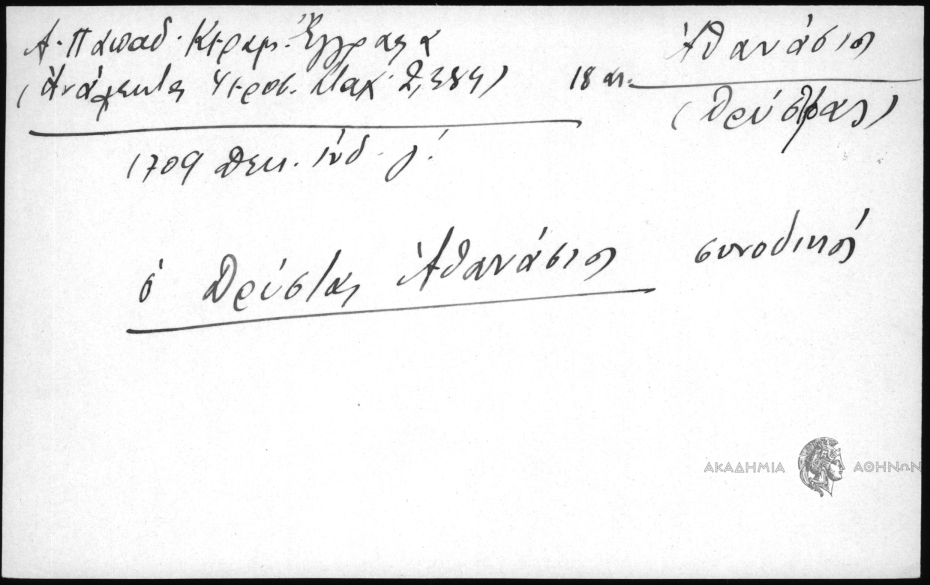 Α. Παπαδ. Κεραμ. Ἔγγραφα
(Ἀνάλεκτα Ἱεροσ. Σταχ. 2, 384)
18 αι. Ἀθανάσιος
(Δρύστρας)
1709 Δεκ. ἰνδ. γ΄.
ὁ Δρύστας Ἀθανάσιος συνοδικός
ΑΚΑΔΗΜΙΑ ΑΘΗΝΩΝ